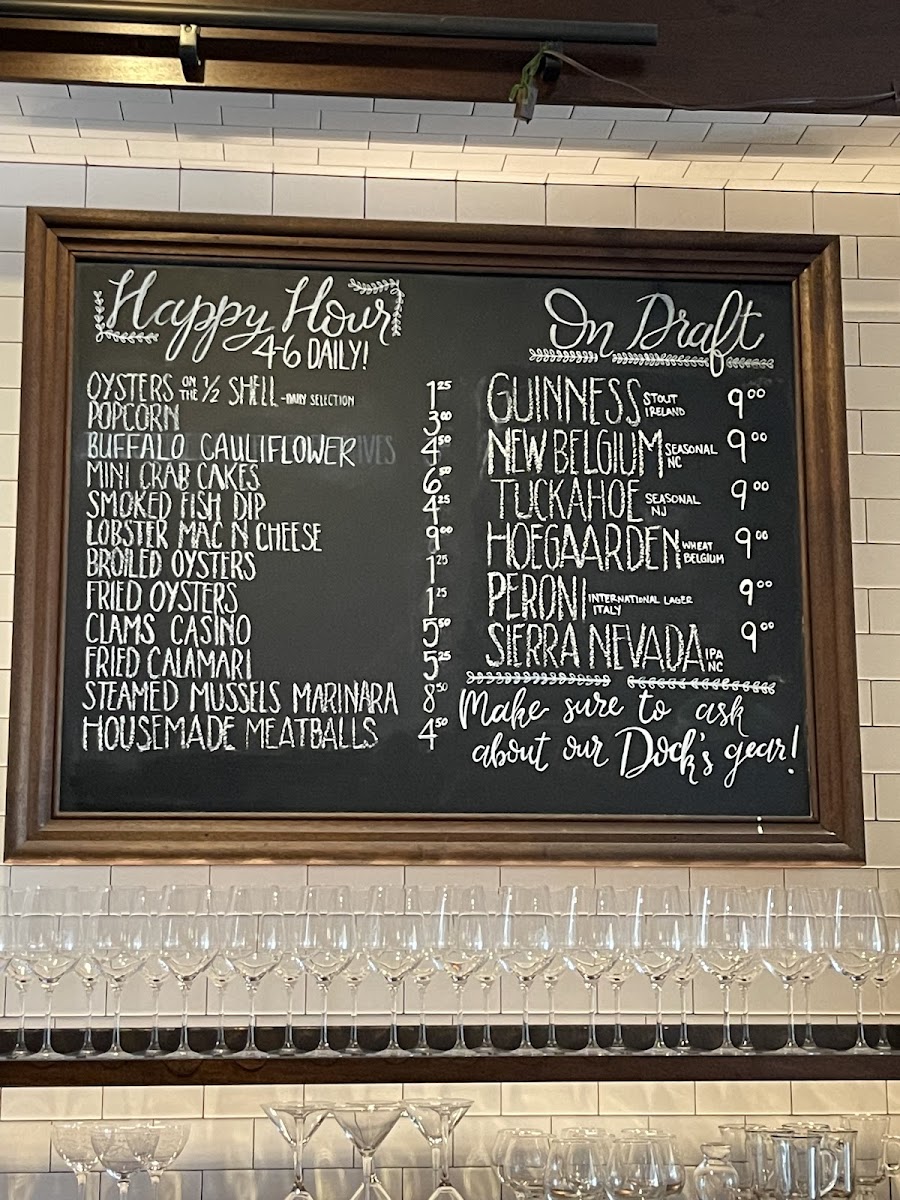 Happy Hour
4-6 DAILY!
OYSTERS ON THE 1/2 SHELL - DAILY SELECTION 1.25
POPCORN 3.00
BUFFALO CAULIFLOWER 4.50
MINI CRAB CAKES 6.50
SMOKED FISH DIP 4.25
LOBSTER MAC N CHEESE 9.00
BROILED OYSTERS 1.25
FRIED OYSTERS 1.25
CLAMS CASINO 5.50
FRIED CALAMARI 5.25
STEAMED MUSSELS MARINARA 8.50
HOUSEMADE MEATBALLS 4.50
On Draft
GUINNESS STOUT IRELAND 9.00
NEW BELGIUM SEASONAL NC 9.00
TUCKAHOE SEASONAL NJ 9.00
HOEGAARDEN WHEAT BELGIUM 9.00
PERONI INTERNATIONAL LAGER ITALY 9.00
SIERRA NEVADA IPA NC 9.00
Make sure to ask
about our Dock's gear!